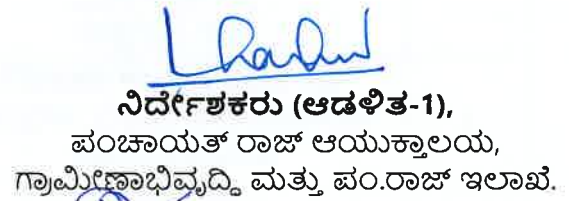 ನಿರ್ದೇಶಕರು (ಆಡಳಿತ-1),
ಪಂಚಾಯತ್ ರಾಜ್ ಆಯುಕ್ತಾಲಯ,
ಗ್ರಾಮೀಣಾಭಿವೃದ್ಧಿ ಮತ್ತು ಪಂ.ರಾಜ್ ಇಲಾಖೆ.